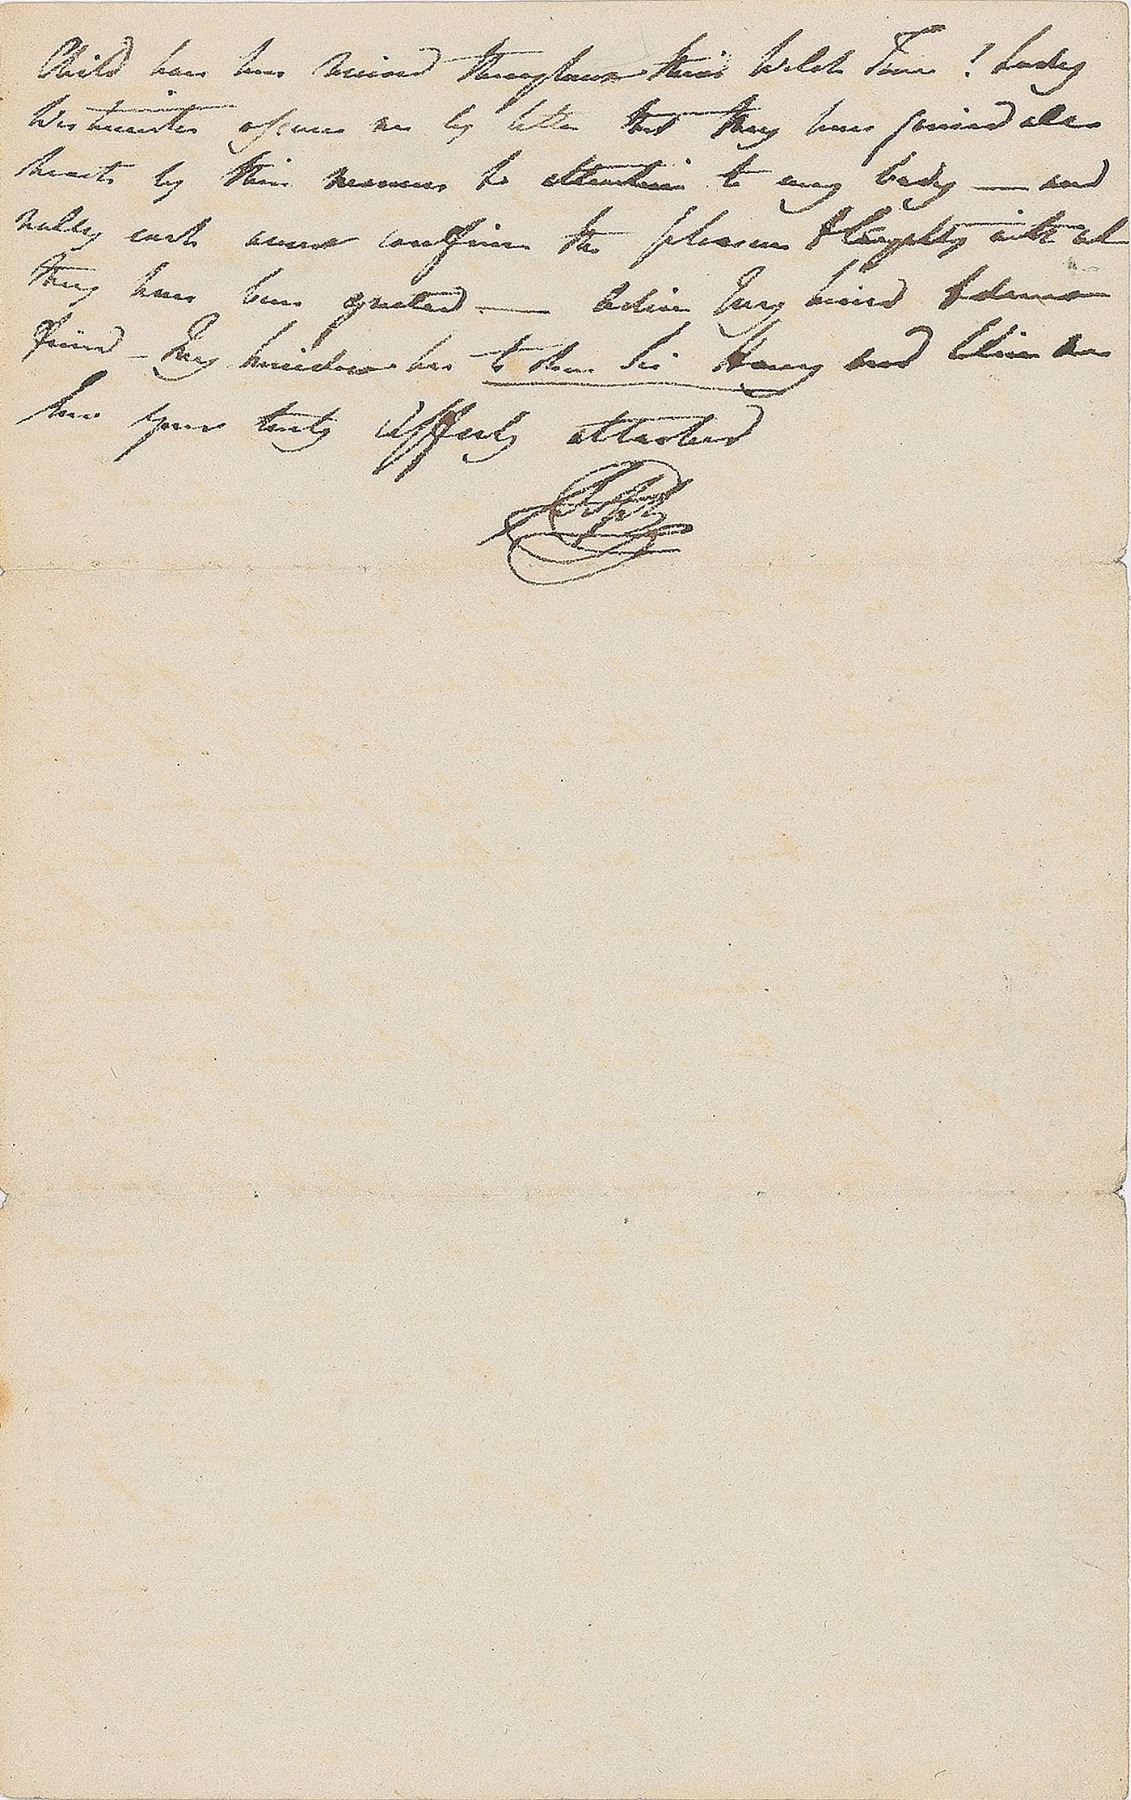 Child have been received throughout their Welsh Tour! Lady
Westminster assures me by letter that they have joined all
hearts by their manner & attention to every body — and
really each account confirm the pleasure & loyalty with wh
they have been greeted — Adieu my kind & dear
friend — My kindest has to dear Sir Henry and Eliza
from yours truly Affectly attached